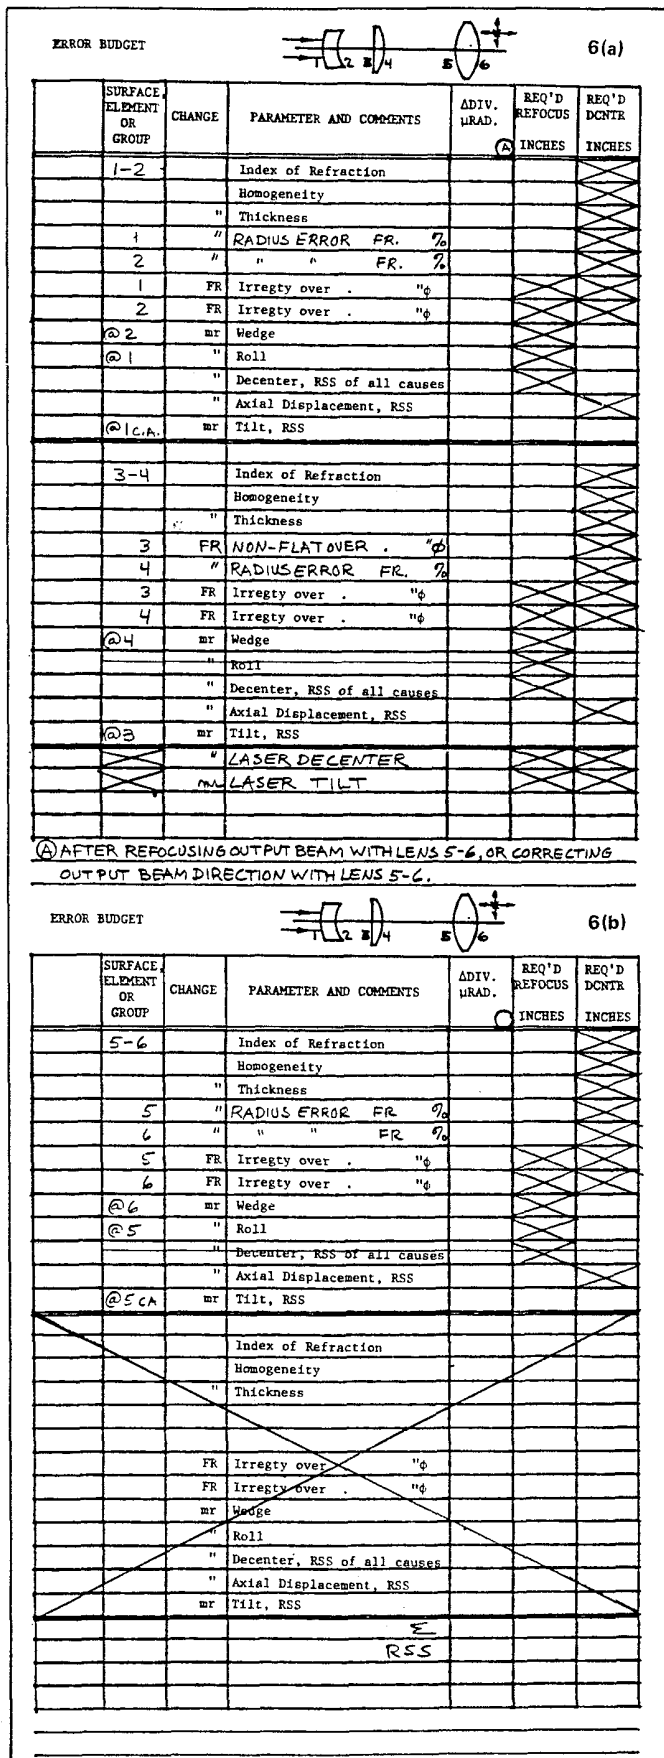 ERROR BUDGET 1 2 3 4 5 6 6(a)
SURFACE, ELEMENT OR GROUP CHANGE PARAMETER AND COMMENTS ΔDIV. μRAD. Ⓐ REQ'D REFOCUS INCHES REQ'D DCNTR INCHES
1-2 Index of Refraction
Homogeneity
" Thickness
1 " RADIUS ERROR FR. %
2 " " " FR. %
1 FR Irregty over . "φ
2 FR Irregty over . "φ
@2 mr Wedge
@1 " Roll
" Decenter, RSS of all causes
" Axial Displacement, RSS
@1C.A. mr Tilt, RSS
3-4 Index of Refraction
Homogeneity
" Thickness
3 FR NON-FLAT OVER . "φ
4 " RADIUS ERROR FR. %
3 FR Irregty over . "φ
4 FR Irregty over . "φ
@4 mr Wedge
" Roll
" Decenter, RSS of all causes
" Axial Displacement, RSS
@3 mr Tilt, RSS
" LASER DECENTER
mr LASER TILT
Ⓐ AFTER REFOCUSING OUTPUT BEAM WITH LENS 5-6, OR CORRECTING
OUTPUT BEAM DIRECTION WITH LENS 5-6.
ERROR BUDGET 1 2 3 4 5 6 6(b)
SURFACE, ELEMENT OR GROUP CHANGE PARAMETER AND COMMENTS ΔDIV. μRAD. REQ'D REFOCUS INCHES REQ'D DCNTR INCHES
5-6 Index of Refraction
Homogeneity
" Thickness
5 " RADIUS ERROR FR %
6 " " " FR %
5 FR Irregty over . "φ
6 FR Irregty over . "φ
@6 mr Wedge
@5 " Roll
" Decenter, RSS of all causes
" Axial Displacement, RSS
@5 CA mr Tilt, RSS
Index of Refraction
Homogeneity
" Thickness
FR Irregty over "φ
FR Irregty over . "φ
mr Wedge
" Roll
" Decenter, RSS of all causes
" Axial Displacement, RSS
mr Tilt, RSS
Σ
RSS